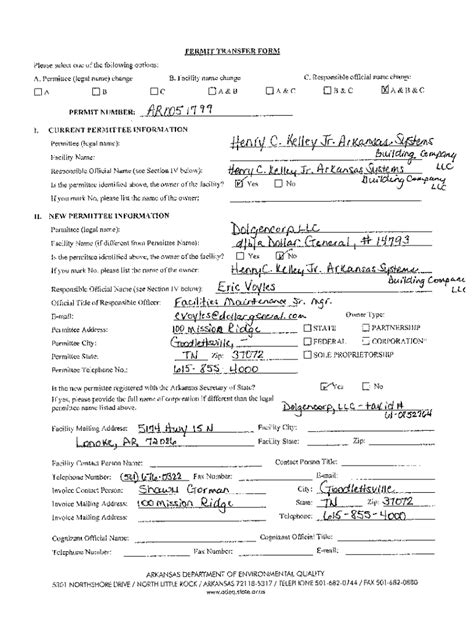 PERMIT TRANSFER FORM
Please select one of the following options:
A. Permittee (legal name) change B. Facility name change C. Responsible official name change
A B C A & B A & C B & C A & B & C
PERMIT NUMBER: AR0051799
I. CURRENT PERMITTEE INFORMATION
Permittee (legal name): Henry C. Kelley Jr. Arkansas Systems
Building Company LLC
Facility Name:
Responsible Official Name (see Section IV below): Henry C. Kelley Jr. Arkansas Systems
Building Company LLC
Is the permittee identified above, the owner of the facility? Yes No
If you mark No, please list the name of the owner:
II. NEW PERMITTEE INFORMATION
Permittee (legal name): Dolgencorp, LLC
Facility Name (if different from Permittee Name): d/b/a Dollar General, # 14793
Is the permittee identified above, the owner of the facility? Yes No
If you mark No, please list the name of the owner: Henry C. Kelley Jr. Arkansas Systems
Building Company LLC
Responsible Official Name (see Section IV below): Eric Voyles
Official Title of Responsible Officer: Facilities Maintenance Sr. Mgr.
E-mail: evoyles@dollargeneral.com Owner Type:
Permittee Address: 100 Mission Ridge STATE PARTNERSHIP
Permittee City: Goodlettsville FEDERAL CORPORATION*
Permittee State: TN Zip: 37072 SOLE PROPRIETORSHIP
Permittee Telephone No.: 615-855-4000
Is the new permittee registered with the Arkansas Secretary of State? Yes No
If yes, please provide the full name of corporation if different than the legal
permittee name listed above. Dolgencorp, LLC - tax id #
61-0852764
Facility Mailing Address: 5174 Hwy 15 N Facility City:
Lonoke, AR 72086 Facility State: Zip:
Facility Contact Person Name: Contact Person Title:
Telephone Number: (501) 676-0322 Fax Number: E-mail:
Invoice Contact Person: Shawn Gorman City: Goodlettsville
Invoice Mailing Address: 100 Mission Ridge State: TN Zip: 37072
Telephone: 615-855-4000
Cognizant Official Name: Cognizant Official Title:
Telephone Number: Fax Number: E-mail:
ARKANSAS DEPARTMENT OF ENVIRONMENTAL QUALITY
5301 NORTHSHORE DRIVE / NORTH LITTLE ROCK / ARKANSAS 72118-5317 / TELEPHONE 501-682-0744 / FAX 501-682-0880
www.adeq.state.ar.us